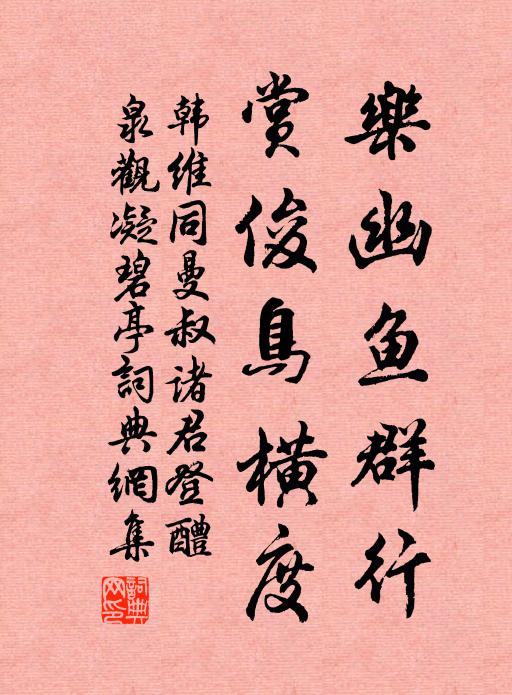 樂幽鱼群行
赏俊鳥橫度
韩维同曼叔诸君登醴
泉觀凝碧亭詞典網集
詞典网印